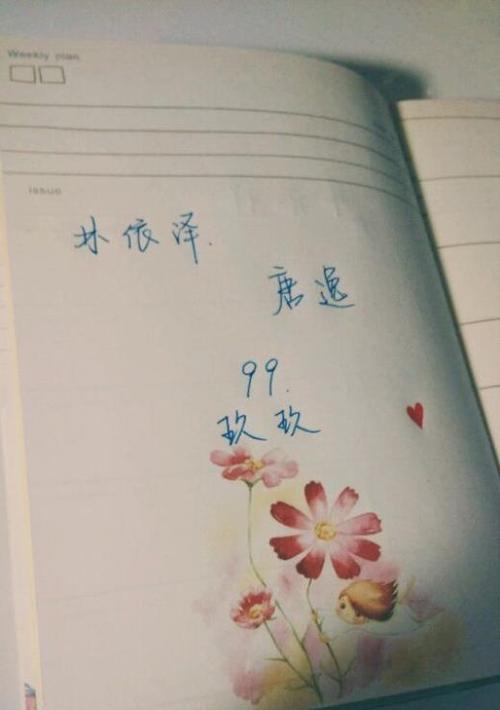 Weekly plan
issue
林依泽.
唐逸
99.
玖玖